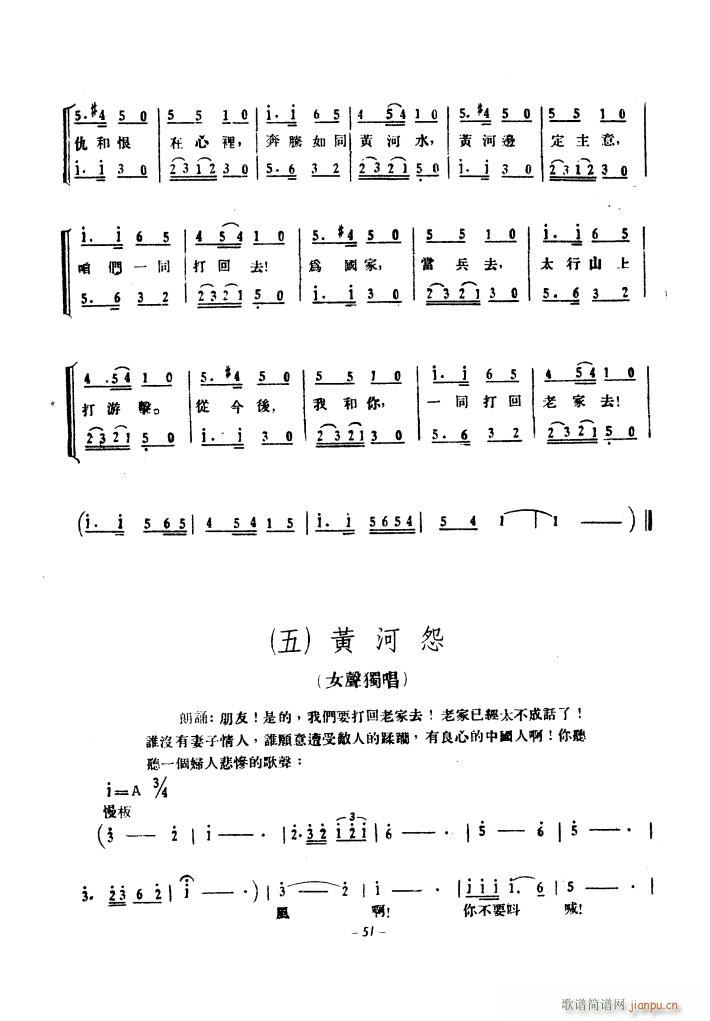 5. #4 5 0 | 5 5 1 0 | i. i 6 5 | 4 54 1 0 | 5. #4 5 0 | 5 5 1 0
仇和恨 在心裡, 奔騰如同 黃河水, 黃河邊 定主意,
i. i 3 0 | 2312 3 0 | 5. 6 3 2 | 2321 5 0 | i. i 3 0 | 2312 3 0
i. i 6 5 | 4 54 1 0 | 5. #4 5 0 | 5 5 1 0 | i. i 6 5
咱們一同 打回去! 爲國家, 當兵去, 太行山上
5. 6 3 2 | 2321 5 0 | i. i 3 0 | 2321 3 0 | 5. 6 3 2
4 54 1 0 | 5. #4 5 0 | 5 5 1 0 | i. i 6 5 | 4 54 1 0
打游擊。 從今後, 我和你, 一同打回 老家去!
2321 5 0 | i. i 3 0 | 2321 3 0 | 5. 6 3 2 | 2321 5 0
(i. i 565 | 4 5415 | i. i 5654 | 5 4 1 | 1 —— )‖
(五) 黃河怨
(女聲獨唱)
朗誦: 朋友! 是的, 我們要打回老家去! 老家已經太不成話了!
誰沒有妻子情人, 誰願意遭受敵人的蹂躪, 有良心的中國人啊! 你聽
聽一個婦人悲慘的歌聲:
i=A 3/4
慢板
(3 —— 2 | i —— · | 2·32 i2i | 6 —— · | 5 —— 6 | 5 —— · |
3. 23 6 2 | i —— ·) | 3 —— 2 | i —— · | iiii i. 6 | 5 —— · |
風 啊! 你不要呌 喊!
- 51 -
歌谱简谱网 jianpu.cn